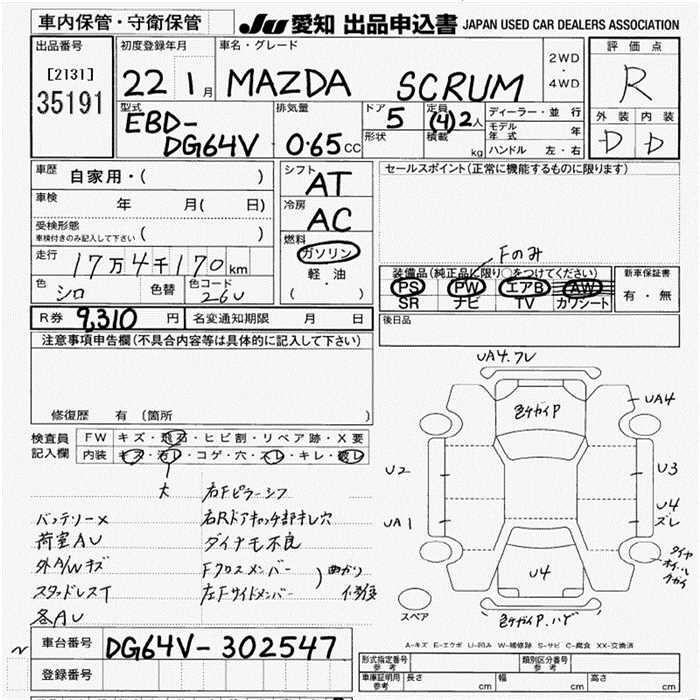 車内保管・守衛保管
JU 愛知 出品申込書 JAPAN USED CAR DEALERS ASSOCIATION
出品番号
[2131]
35191
初度登録年月
22 1月
車名・グレード
MAZDA SCRUM
2WD
・
4WD
評価点
R
外装 内装
D D
型式
EBD-
DG64V
排気量
0.65CC
ドア
5
形状
定員
(4)2人
積載 kg
ディーラー・並行
モデル年式 年
ハンドル 左・右
車歴
自家用・( )
車検 年 月( 日)
受検形態
車検付きのみ記入して下さい ( )
走行
17万4千170km
色
シロ
色替
色コード
26U
シフト
AT
冷房
AC
燃料
ガソリン
軽・油
( )
セールスポイント(正常に機能するものに限ります)
Fのみ
装備品(純正品に限り○をつけてください)
PS PW エアB AW
SR ナビ TV カワシート
新車保証書
有・無
R券 9,310 円
名変通知期限 月 日
後日品
注意事項申告欄(不具合内容等は具体的に記入して下さい)
修復歴 有 (箇所 )
検査員
記入欄
FW キズ・飛石・ヒビ割・リペア跡・X要
内装 キズ・汚レ・コゲ・穴・スレ・キレ・破レ
大
右Fピラーシフ
バッテリー×
右Rドアキャッチ部キレ穴
荷室AU
ダイナモ不良
外A/Wキズ
Fクロスメンバー
曲がり
スタッドレスT
左Fサイドメンバー
各AU
UA4.ワレ
色ちがいP
UA4
U2
U3
UA1
U4
ズレ
U4
タイヤ
ホイール
ちがい
スペア
車台番号 DG64V-302547
登録番号
A-キズ E-エクボ U-凹み W-補修跡 S-サビ C-腐食 XX-交換済
形式指定番号
参考
類別区分番号
参考
車庫証明用
参考
長さ cm
幅 cm
高さ cm